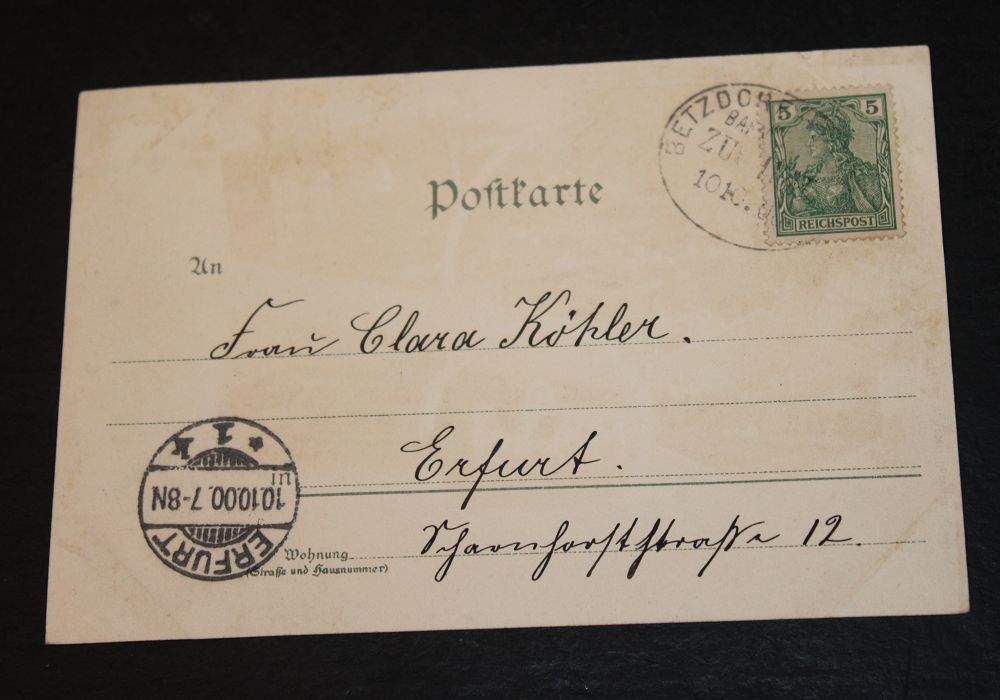 Postkarte
BETZDOR
BAH
ZU
10 10. 00
5 5
REICHSPOST
An
Frau Clara Köhler.
in Erfurt.
Wohnung
(Straße und Hausnummer)
Scharnhorststraße 12.
ERFURT
10.10.00.7-8N
* 1 k